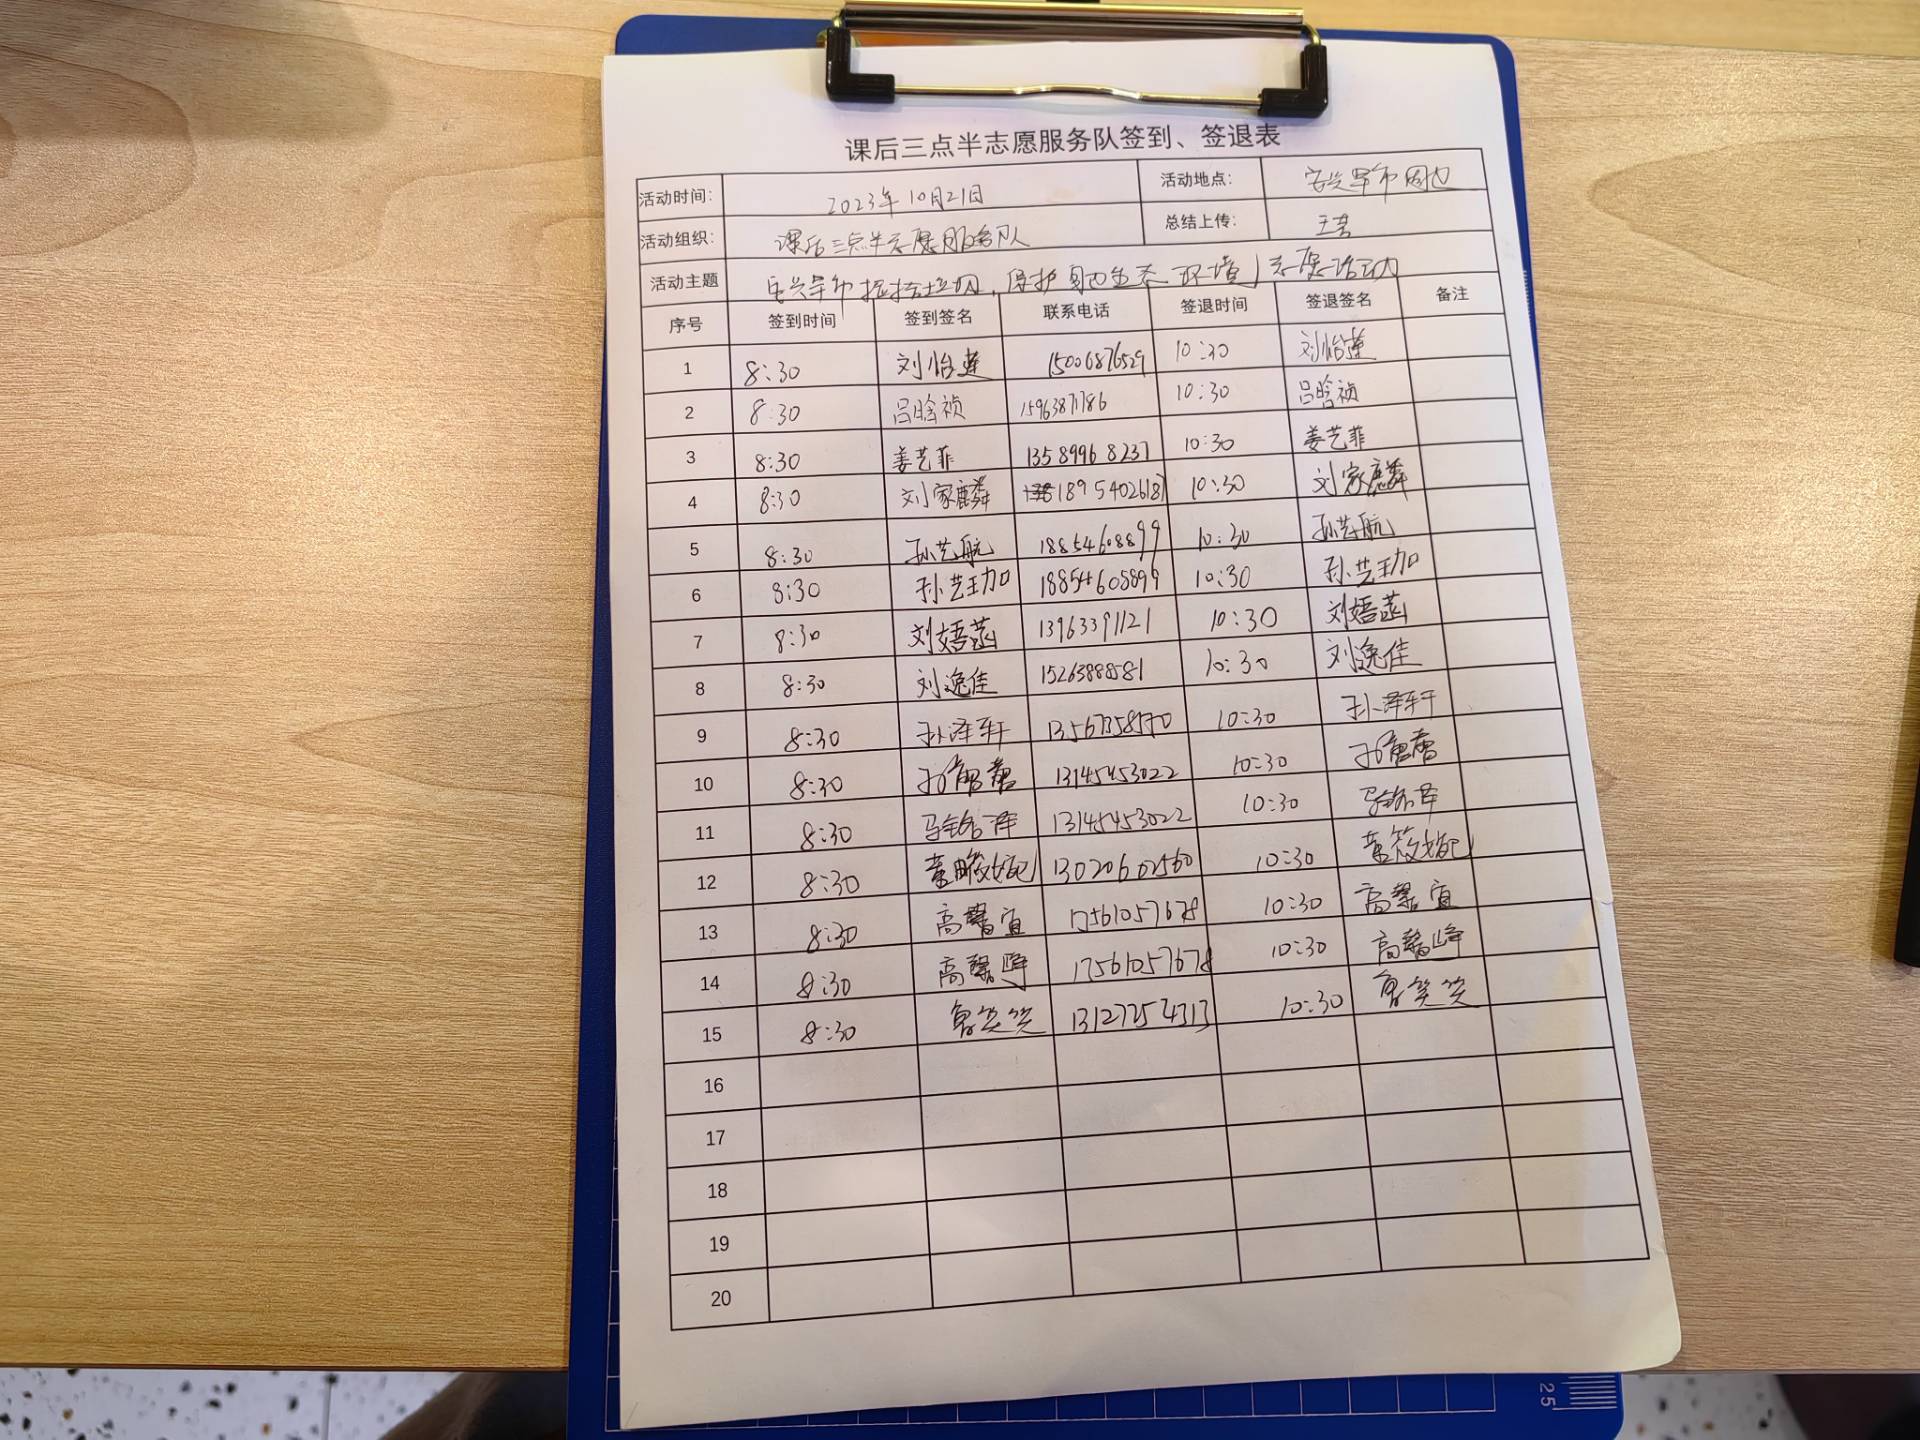 课后三点半志愿服务队签到、签退表
活动时间: 2023年10月21日 活动地点: 安兴早市周边
活动组织: 课后三点半志愿服务队 总结上传: 王
活动主题 安兴早市捡拾垃圾,保护身边生态环境 志愿活动
序号 签到时间 签到签名 联系电话 签退时间 签退签名 备注
1 8:30 刘怡莲 15006876529 10:30 刘怡莲
2 8:30 吕晗祯 15963871786 10:30 吕晗祯
3 8:30 姜艺菲 13589968237 10:30 姜艺菲
4 8:30 刘家麟 18954026187 10:30 刘家麟
5 8:30 孙艺航 18854608899 10:30 孙艺航
6 8:30 孙艺珈 18854608899 10:30 孙艺珈
7 8:30 刘娪菡 13963391121 10:30 刘娪菡
8 8:30 刘逸佳 15263888581 10:30 刘逸佳
9 8:30 孙泽轩 10:30 孙泽轩
10 8:30 13145453022 10:30
11 8:30 马铭泽 13145453022 10:30 马铭泽
12 8:30 13020602560 10:30
13 8:30 高馨宜 17561057678 10:30 高馨宜
14 8:30 高馨峰 17561057678 10:30 高馨峰
15 8:30 鲁笑笑 13127254313 10:30 鲁笑笑
16
17
18
19
20
25